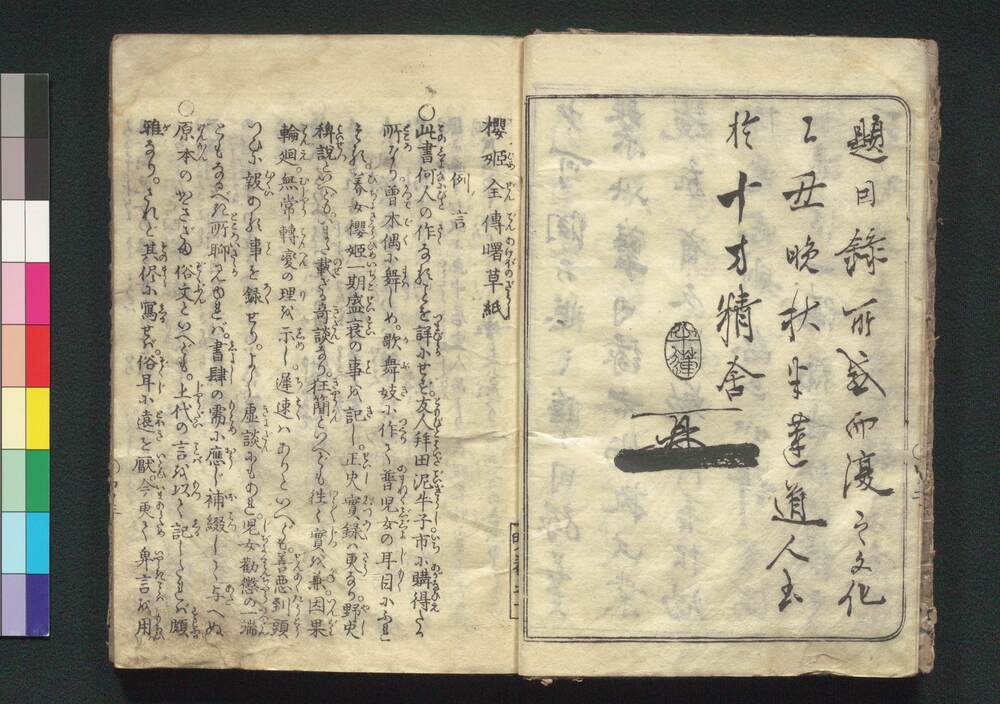 題目録所感而復之文化
乙丑晩秋半蓮道人書
於十才精舎
櫻姫全傳曙草紙
例言
○此書何人の作なることを詳にせず友人拜田泥牛子市に購得たる
所なり曾本偶に舞しめ歌舞妓に作りて普児女の耳目にふれ
それ養女櫻姫一期盛衰の事を記し正史實録は更なり野史
稗説といへどもいまだ載ざる奇談なり狂蕑といへども往々實を兼因果
輪廻無常轉変の理を示し遲速はありといへども善悪到頭
つひに報のる事を録せりよし虚談にもあれ児女勧懲の一端
ともなるべれ所聊見ゆればは書肆の需に應じ補綴して与へぬ
○原本のかきざま俗文といへども上代の言を以て記したれば頗
雅なりされど其侭に寫せば俗耳に遠を厭今更に卑言を用